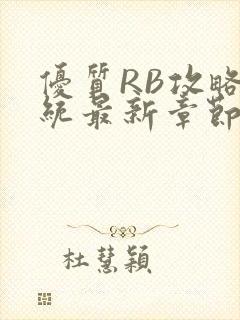 優質RB攻略
統最新章節
杜慧穎